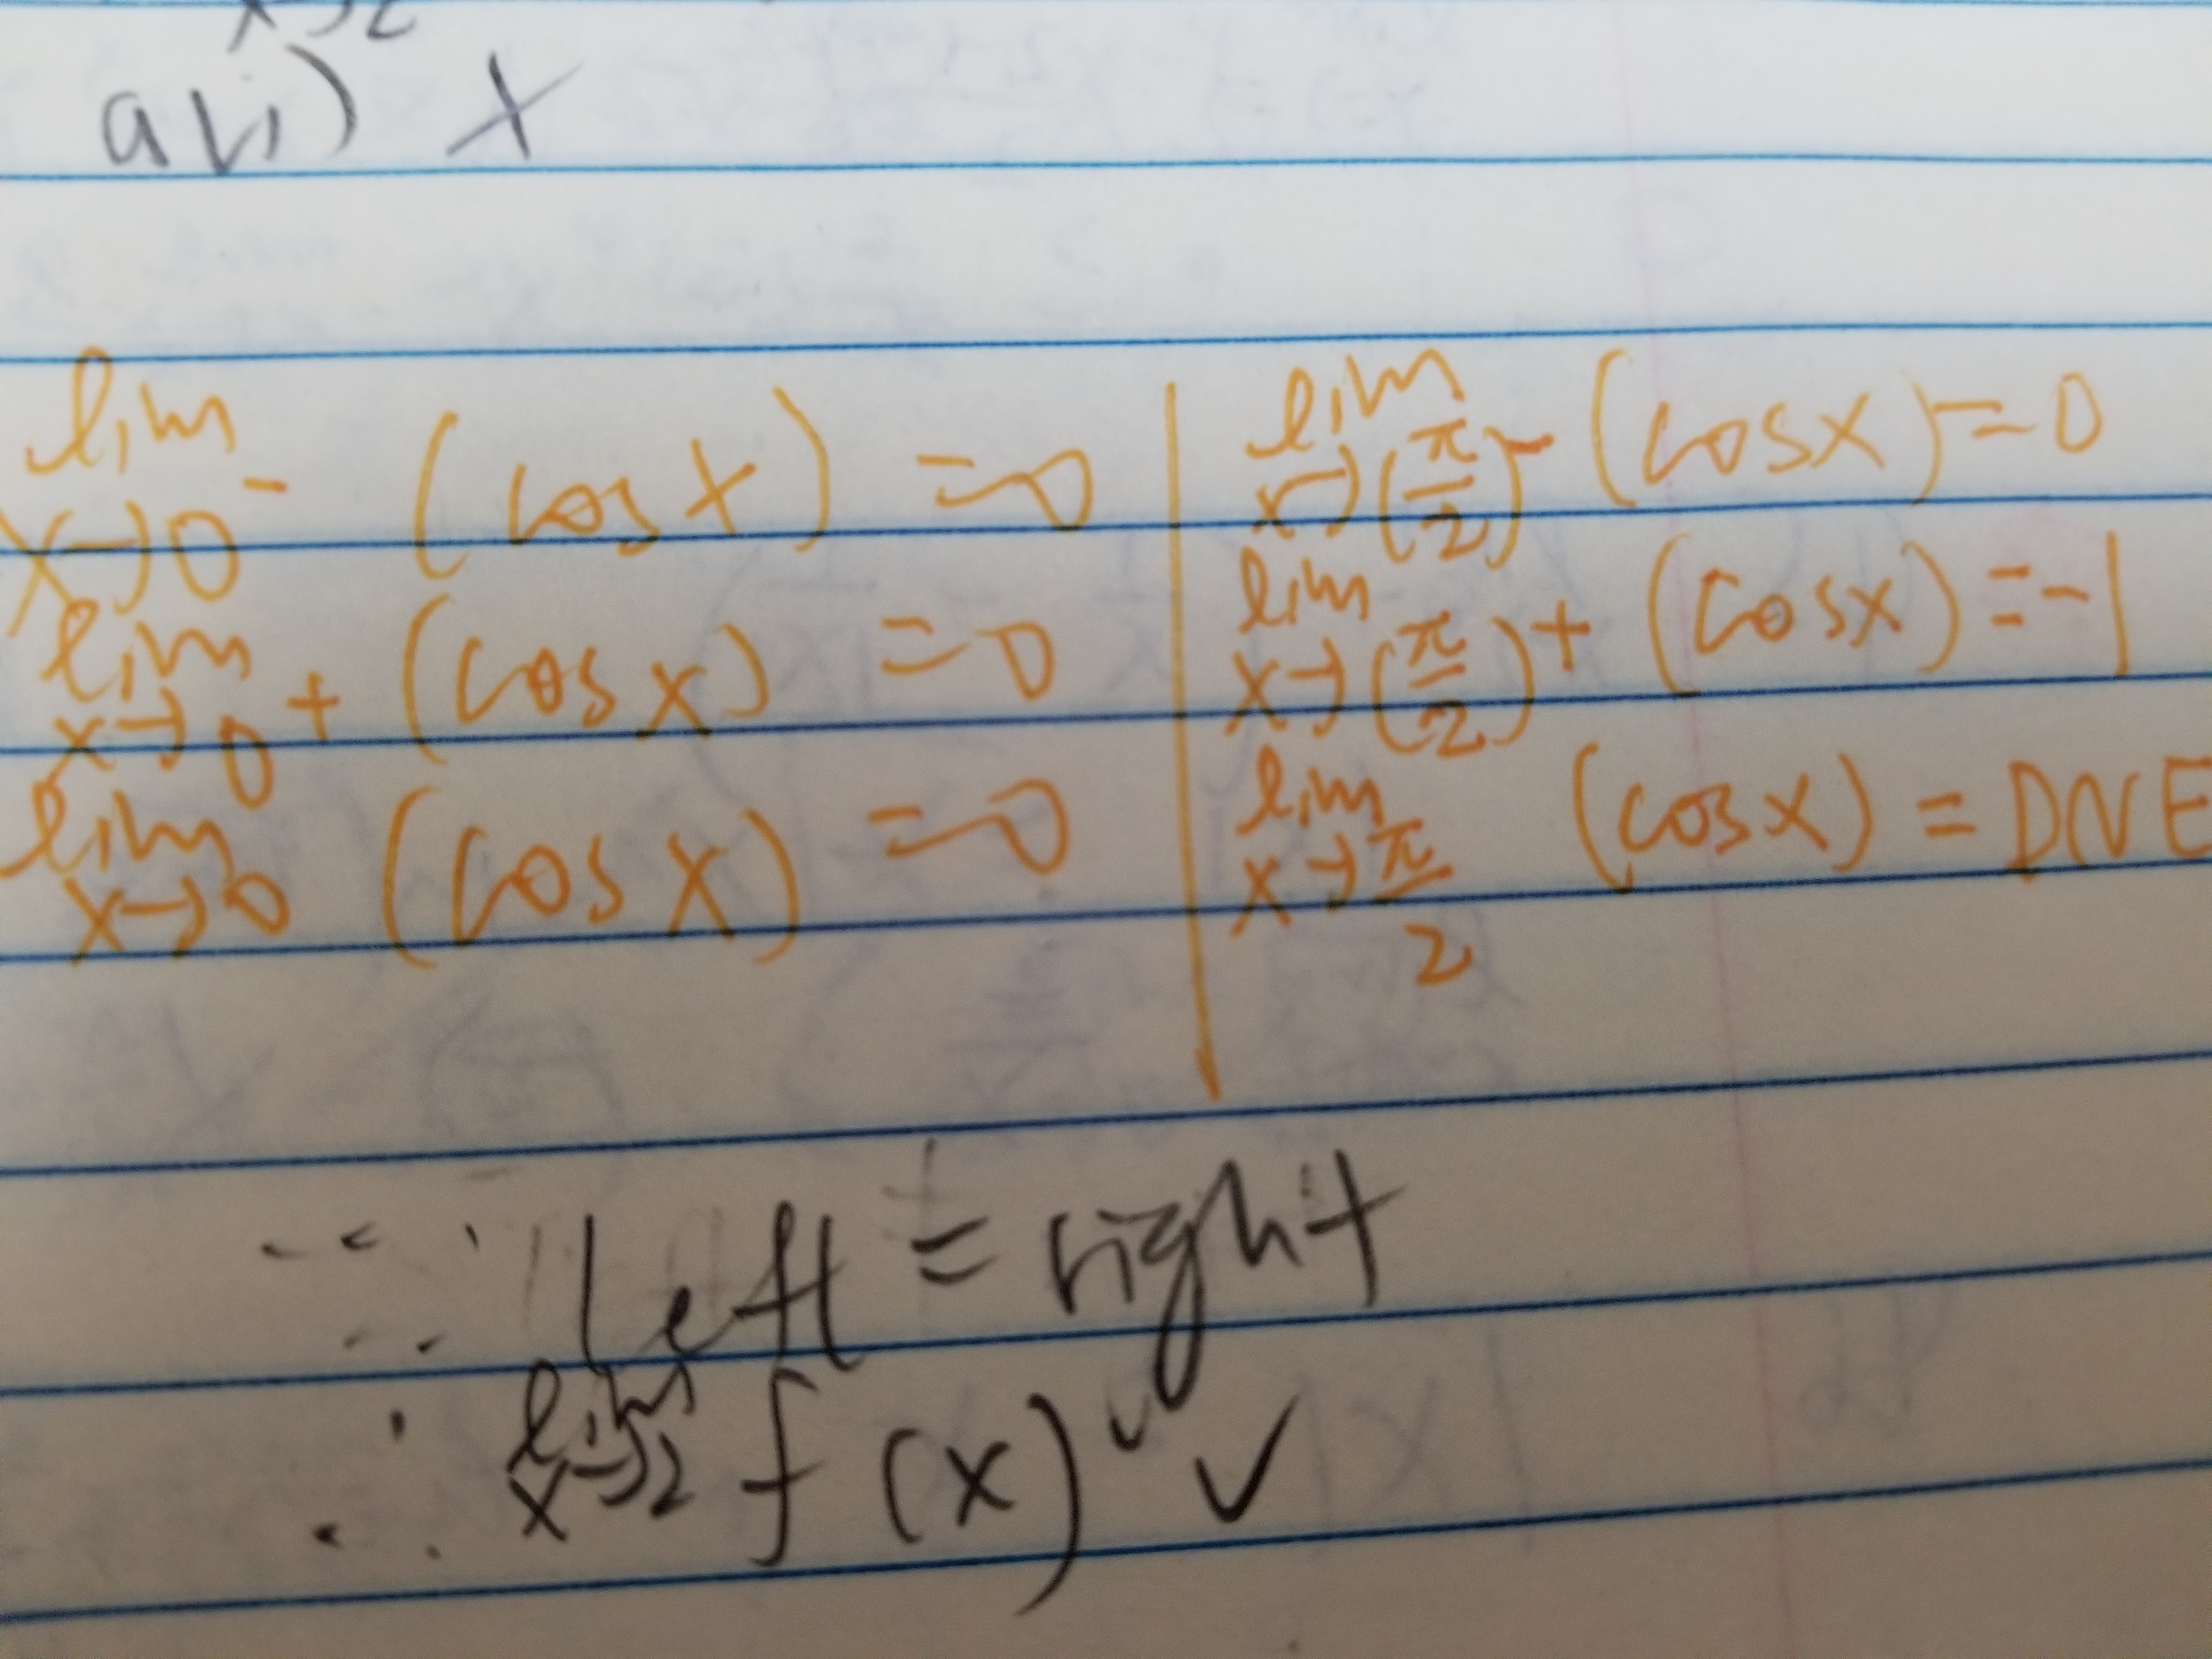 x→2
a(1) x
lim x→0⁻ (cos x) = 0
lim x→0⁺ (cos x) = 0
lim x→0 (cos x) = 0
lim x→(π/2)⁻ (cos x) = 0
lim x→(π/2)⁺ (cos x) = -1
lim x→π/2 (cos x) = DNE
∵ left = right
∴ lim x→2 f(x) ✓